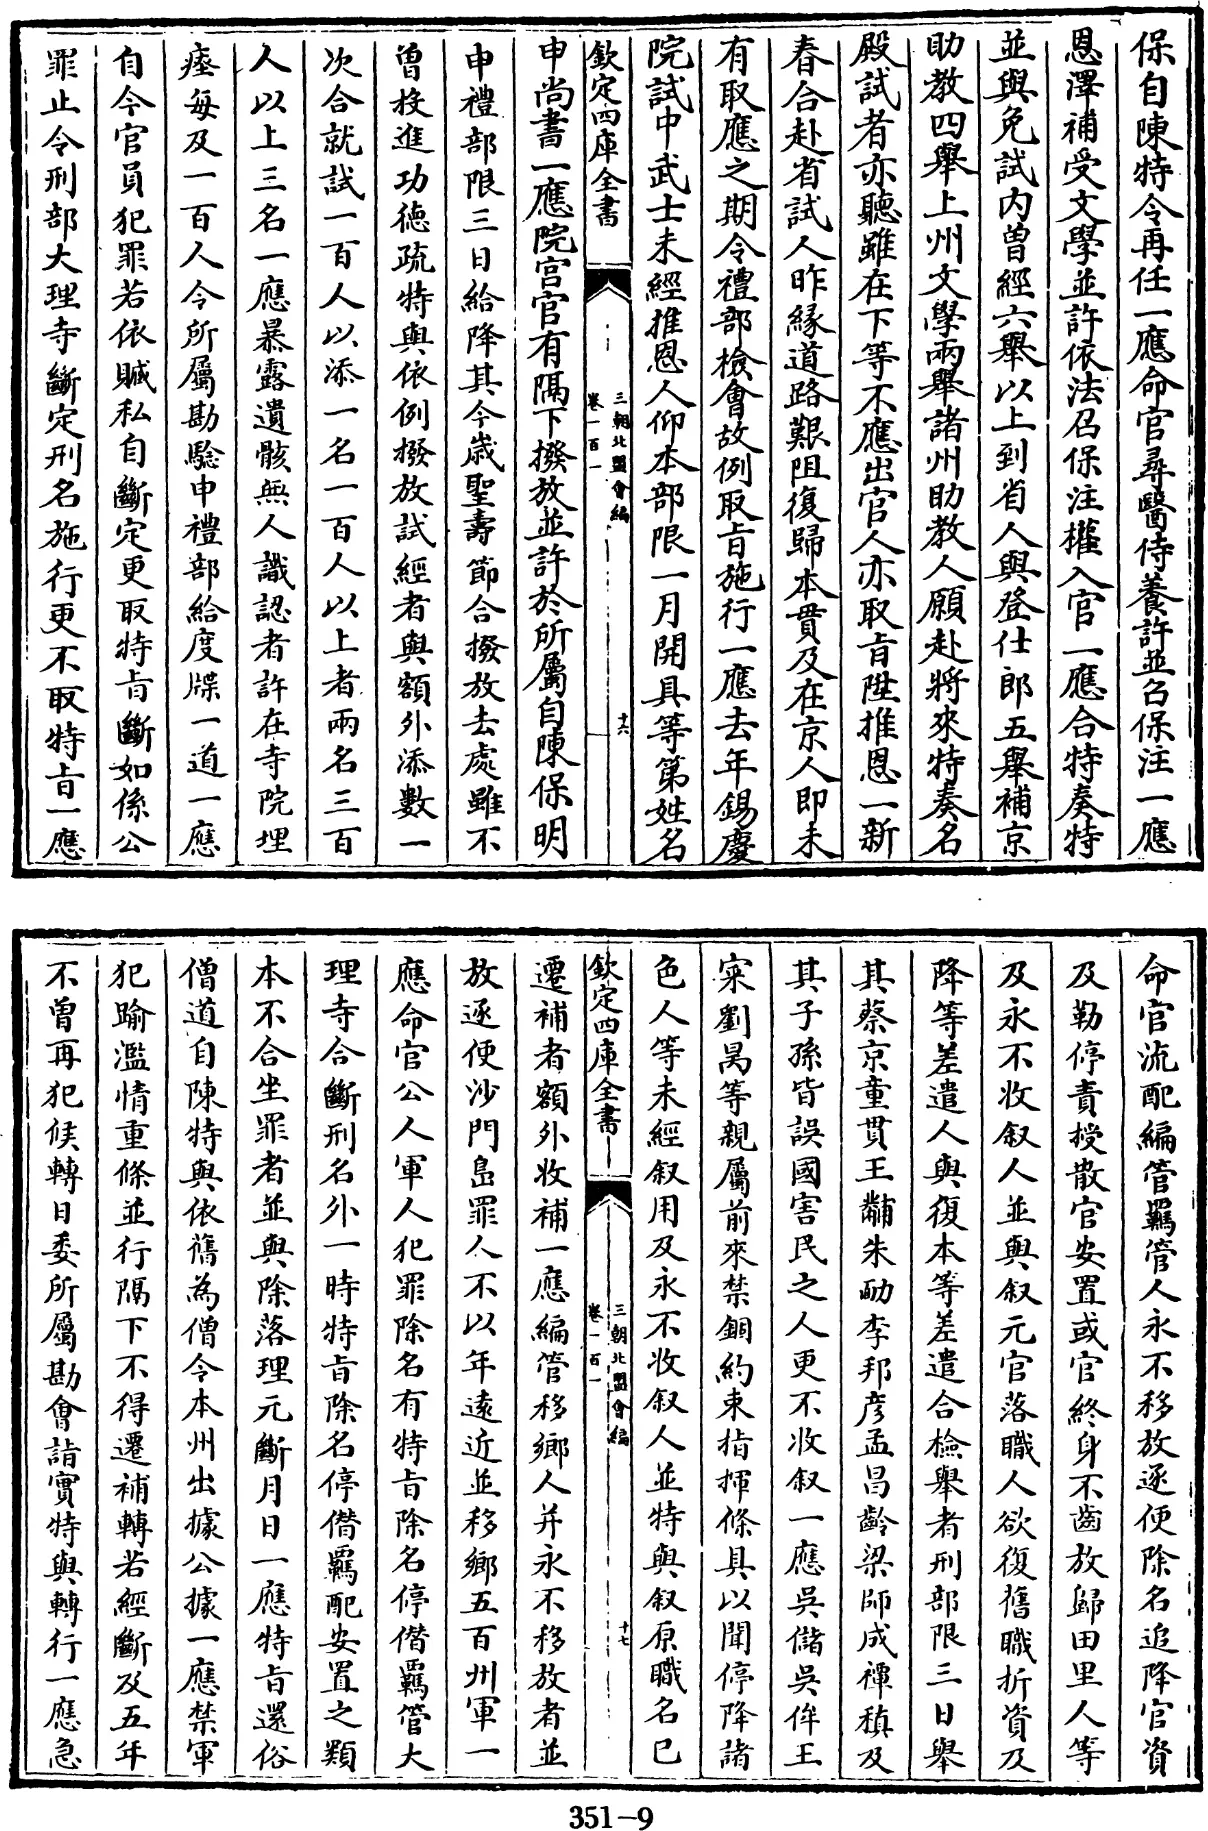 保自陳特令再任一應命官尋醫侍養許並召保注一應
恩澤補受文學並許依法召保注權入官一應合特奏特
並與免試内曽經六舉以上到省人與登仕郎五舉補京
助教四舉上州文學兩舉諸州助教人願赴將來特奏名
殿試者亦聽雖在下等不應出官人亦取㫖陞推恩一新
春合赴省試人昨緣道路艱阻復歸本貫及在京人即未
有取應之期令禮部檢會故例取㫖施行一應去年錫慶
院試中武士未經推恩人仰本部限一月開具等第姓名
欽定四庫全書
三朝北盟會編
卷一百一
十六
申尚書一應院宫官有隔下撥放並許於所屬自陳保明
申禮部限三日給降其今歲聖壽節合撥放去處雖不
曽投進功德疏特與依例撥放試經者與額外添數一
次合就試一百人以添一名一百人以上者兩名三百
人以上三名一應暴露遺骸無人識認者許在寺院埋
瘞每及一百人令所屬勘驗申禮部給度牒一道一應
自今官員犯罪若依贓私自斷定更取特㫖斷如係公
罪止令刑部大理寺斷定刑名施行更不取特㫖一應
命官流配編管羈管人永不移放逐便除名追降官資
及勒停責授散官安置或官終身不齒放歸田里人等
及永不收叙人並與叙元官落職人欲復舊職折資及
降等差遣人與復本等差遣合檢舉者刑部限三日舉
其蔡京童貫王黼朱勔李邦彦孟昌齡梁師成禪稹及
其子孫皆誤國害民之人更不收叙一應吳儲吳侔王
寀劉昺等親屬前來禁錮約束指揮條具以聞停降諸
色人等未經叙用及永不收叙人並特與叙原職名已
欽定四庫全書
三朝北盟會編
卷一百一
十七
遷補者額外收補一應編管移鄉人并永不移放者並
放逐便沙門島罪人不以年遠近並移鄉五百州軍一
應命官公人軍人犯罪除名有特㫖除名停僭羈管大
理寺合斷刑名外一時特㫖除名停僭羈配安置之類
本不合坐罪者並與除落理元斷月日一應特㫖還俗
僧道自陳特與依舊為僧令本州出據公據一應禁軍
犯踰濫情重條並行隔下不得遷補轉若經斷及五年
不曽再犯候轉日委所屬勘會詣實特與轉行一應急
351-9